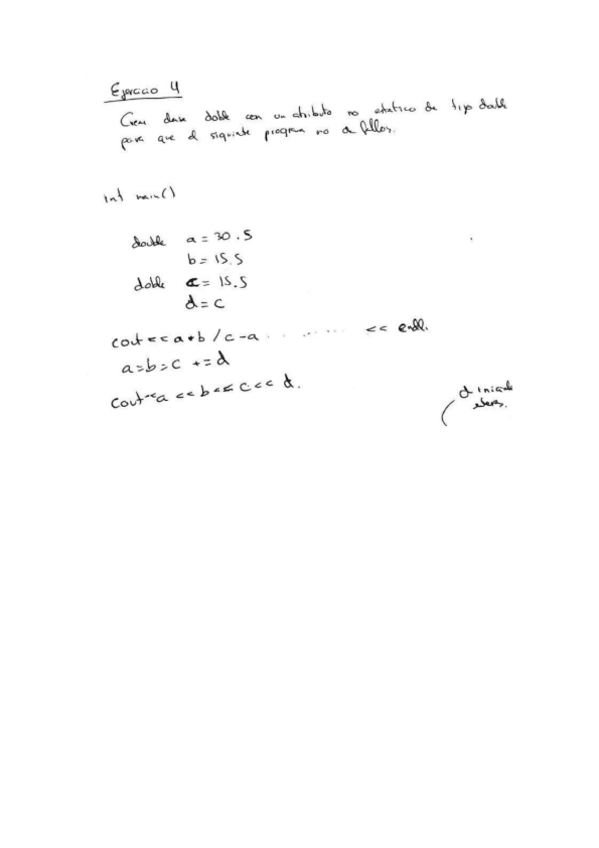 Ejercicio 4
Crear clase doble con un atributo no estatico de tipo double
para que el siguiente programa no de fallos.
int main()
double a = 30.5
b = 15.5
doble c = 15.5
d = c
cout << a * b / c - a . . . . . . . . << endl.
a = b = c += d
cout << a << b << c << d.
d